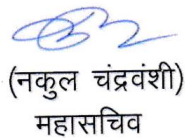 (नकुल चंद्रवंशी)
महासचिव